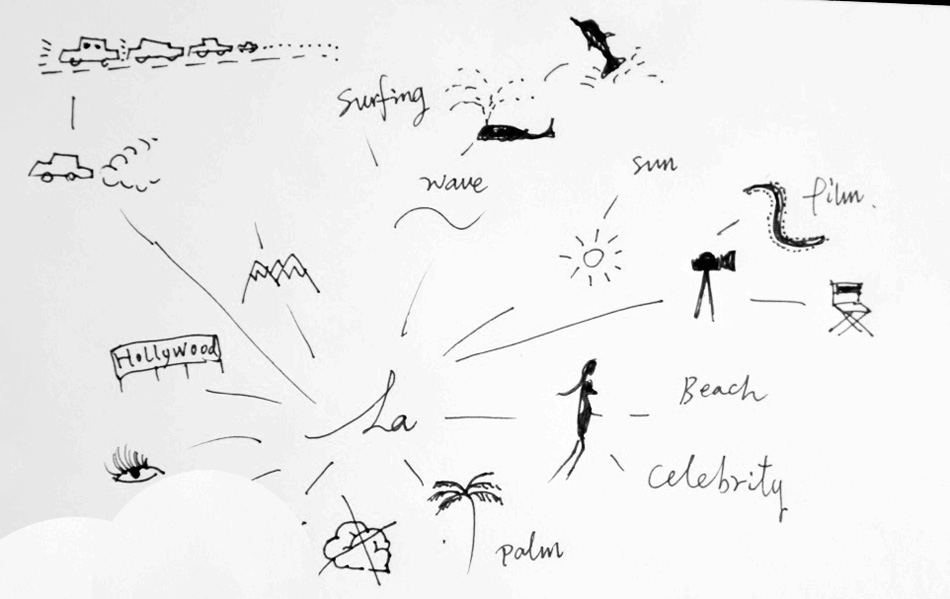 Surfing
wave
sun
film.
Hollywood
La
Beach
Celebrity
palm